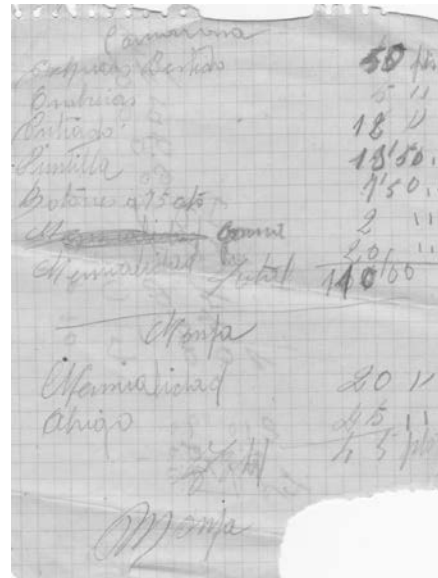 Entregas Bestido 50 pts.
Entregas 5 "
Entrego 18 "
Puntilla 13'50.
Botones a 75 cts 1'50.
2 "
Mensualidad 20 "
Total 110'00
Monja
Mensualidad 20 "
Abrigo 25 "
Total 45 pts
Monja